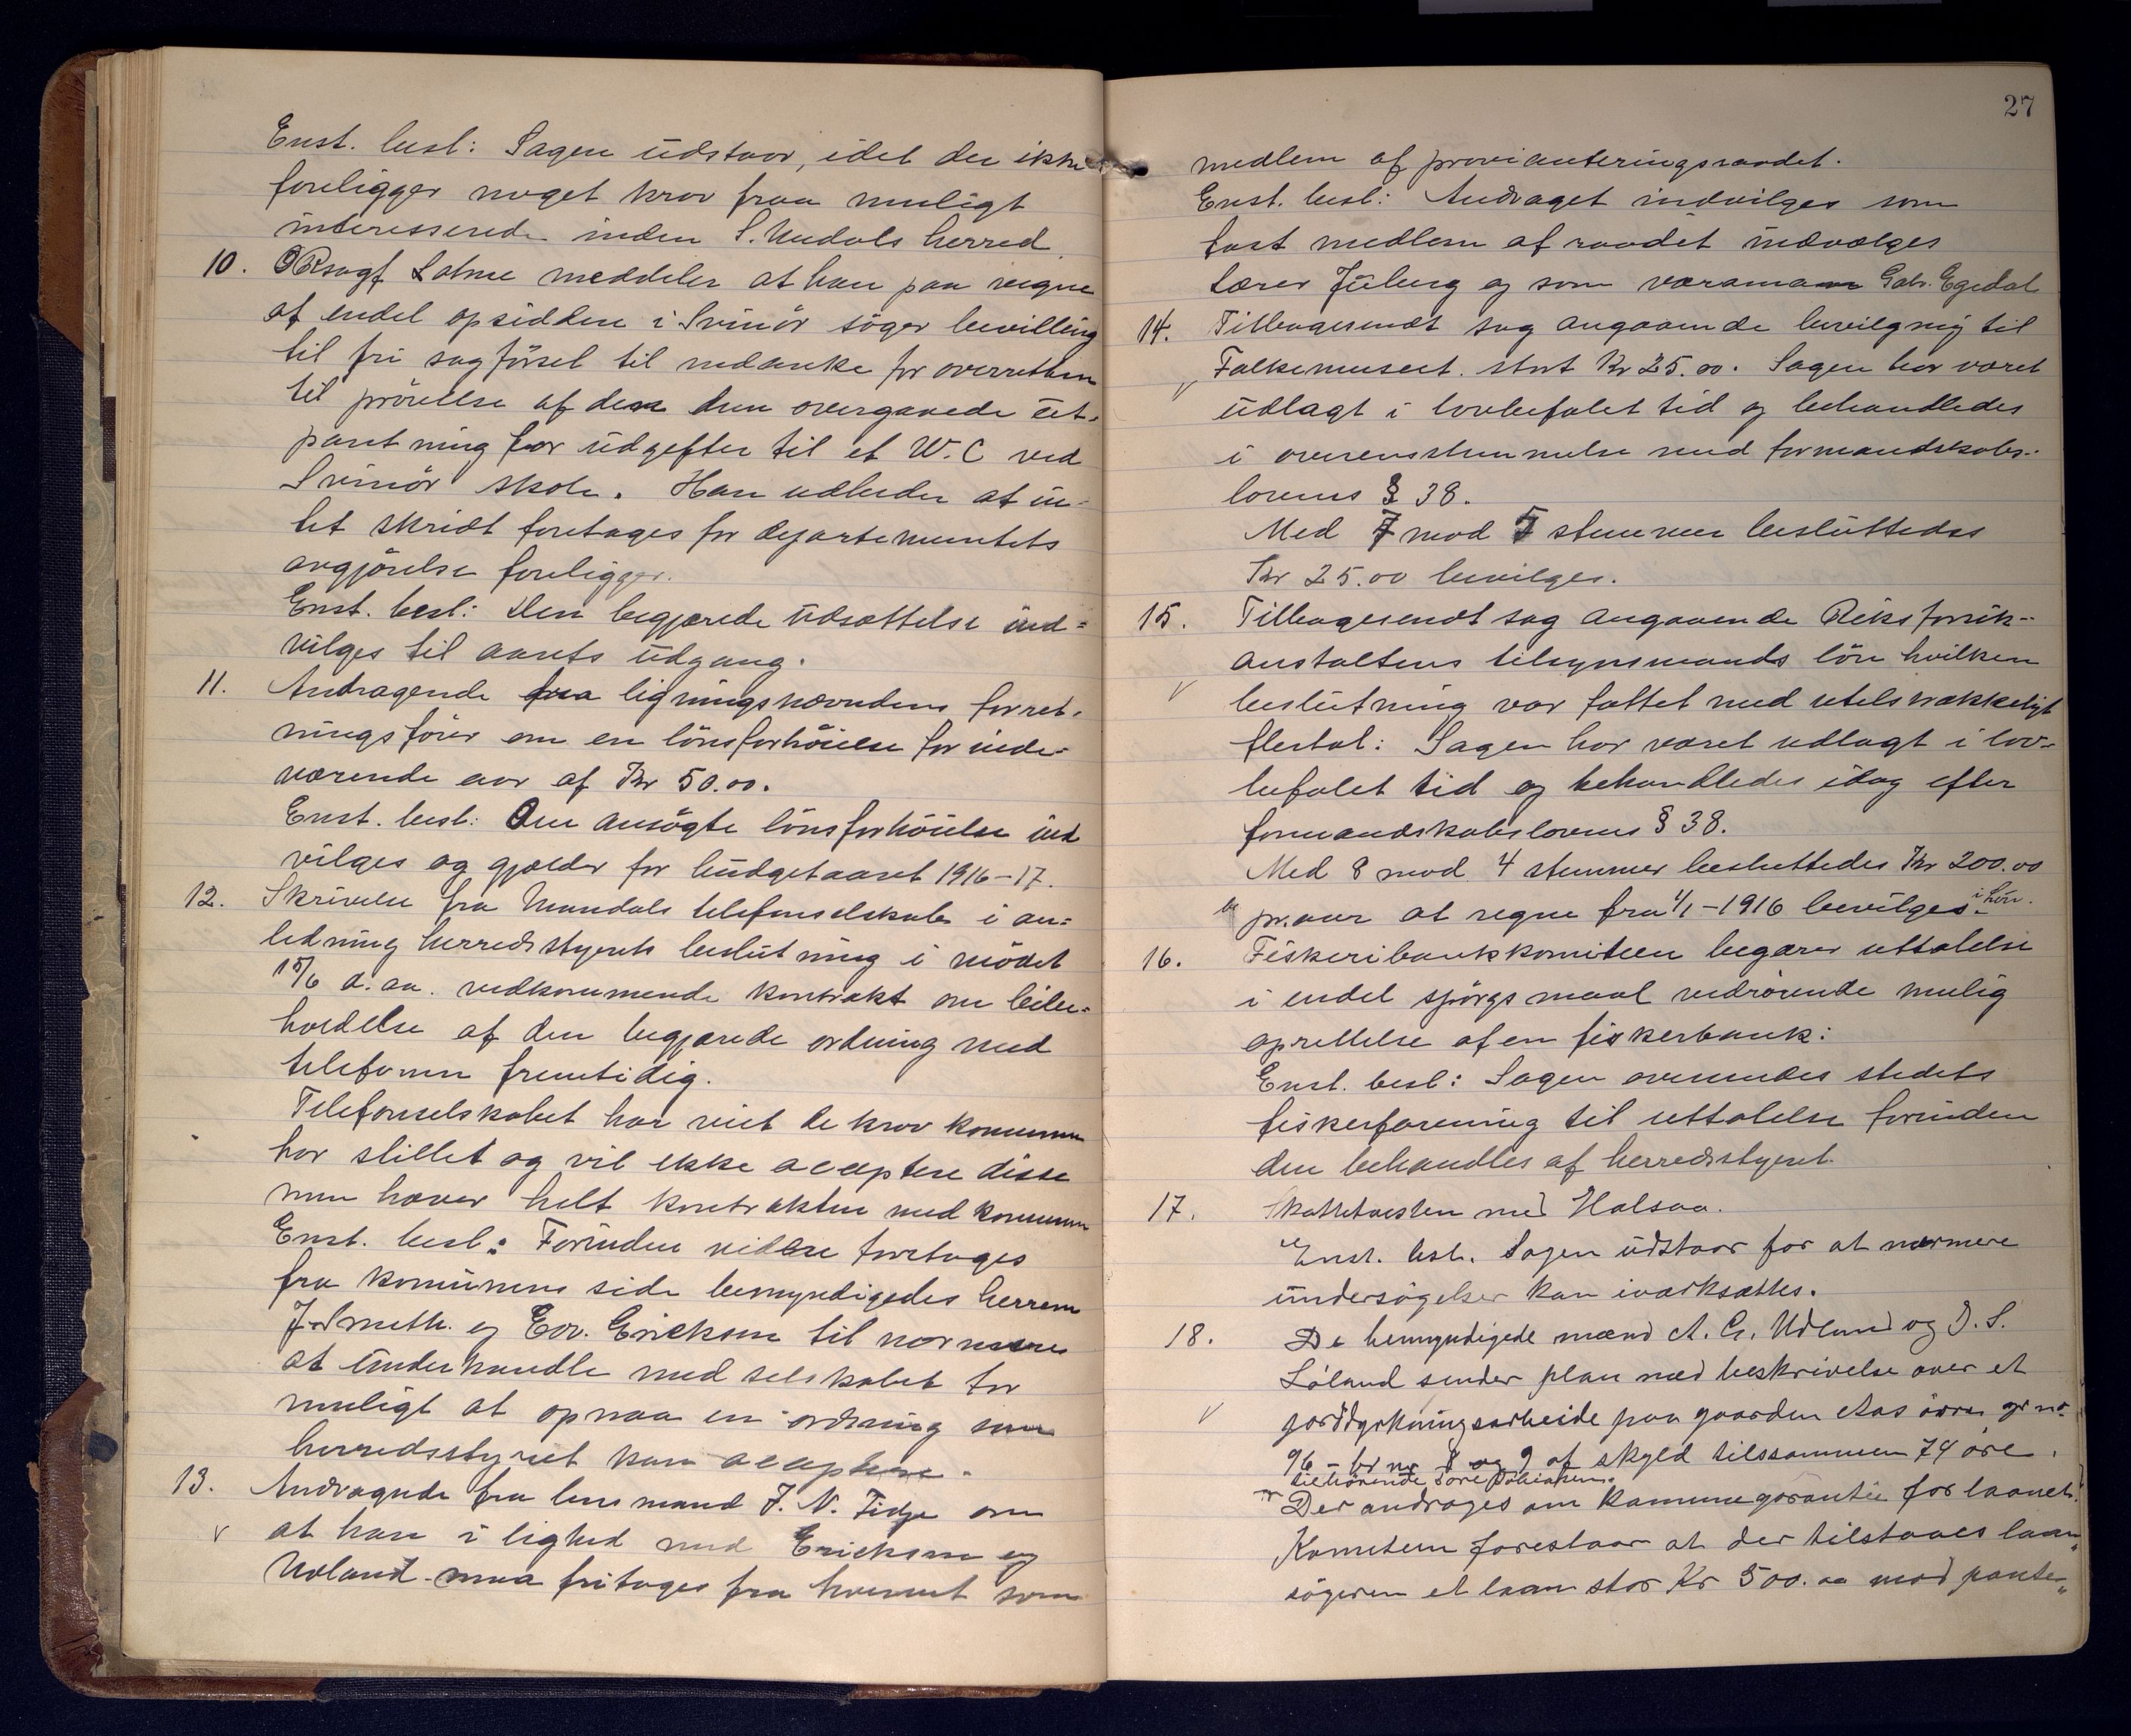 Enst. besl: Sagen udstaar, idet der ikke
foreligger noget krav fraa muligt
interesserede inden S. Undals herred.
10. ORsagf Salme meddeler at han paa vegne
af endel opsiddere i Svinör söger bevilling
til fri sagförsel til nedanke for overretten
til prövelse af den den overgaaede ut-
pantning for udgifter til et W.C ved
Svinör skole. Han udbeder at in-
tet skridt foretages för departementets
avgjörelse foreligger.
Enst. besl: Den begjærede udsættelse ind=
vilges til aarets udgang.
11. Andragende fra ligningsnævndens forret-
ningsförer om en lönsforhöielse for inde-
værende aar af Kr 50.00.
Enst. besl: Den ansögte lönsforhöielse ind
vilges og gjælder for budgetaaret 1916-17.
12. Skrivelse fra Mandals telefonselskab i an=
ledning herredsstyrets beslutning i mödet
15/6 d. aa. vedkommende kontrakt om bibe=
holdelse af den begjærede ordning med
telefonen fremtidig.
Telefonselskabet har veiet de krav kommunen
har stillet og vil ikke acceptere disse
men hæver helt kontrakten med kommunen
Enst. besl: Forinden videre foretages
fra komunens side bemyndigedes herrene
J. Smeth. og Edv. Ericksen til nærmere
at underhandle med selskabet for
muligt at opnaa en ordning som
herredsstyret kan acceptere.
13. Andragende fra lensmand J. N. Tidje om
v at han i lighed med Ericksen og
Udland maa fritages fra hvervet som
27
medlem af provianteringsraadet.
Enst. besl: Andraget indvilges som
fast medlem af raadet indvælges
Lærer Fuberg og som varamann Gabr. Egedal
14. Tilbagesendt sag angaaende bevilgnig til
v Folkemuseet. stort Kr 25.00. Sagen har været
udlagt i lovbefalet tid og behandledes
i overensstemmelse med formandskabs-
lovens § 38.
Med 7 mod 5 stemmer besluttedes
Kr 25.00 bevilges.
15. Tilbagesendt sag angaaende Riksforsik-
anstaltens tilsynsmands lön hvilken
v beslutning var fattet med utilstrækkeligt
flertal: Sagen har været udlagt i lov-
befalet tid og behandledes idag efter
formandskabslovens § 38.
Med 8 mod 4 stemmer besluttedes Kr 200.00
pr. aar at regne fra 1/1-1916 bevilges i lön.
16. Fiskeribankkomiteen begærer uttalelse
i endel spörgsmaal vedrörende mulig
oprettelse af en fiskerbank:
Enst. besl: Sagen oversendes stedets
fiskerforening til uttalelse forinden
den behandles af herredsstyret.
17. Skattetvesten med Halsaa.
Enst. besl. Sagen udstaar for at nærmere
undersögelser kan iværksættes.
18. De bemyndigede mænd A. G. Udland og D. S.
Löland sender plan med beskrivelse over et
v jorddyrkningsarbeide paa gaarden Aas övre gr no
96 - br no 8 og 9 af skyld tilssammen 74 öre.
tilhörende Tore Tobiassen.
Der andrages om kommunegarantie for laanet.
Komiteen forestaar at der tilstaaes laan„
sögeren et laan stor Kr 500.00 mod pante„